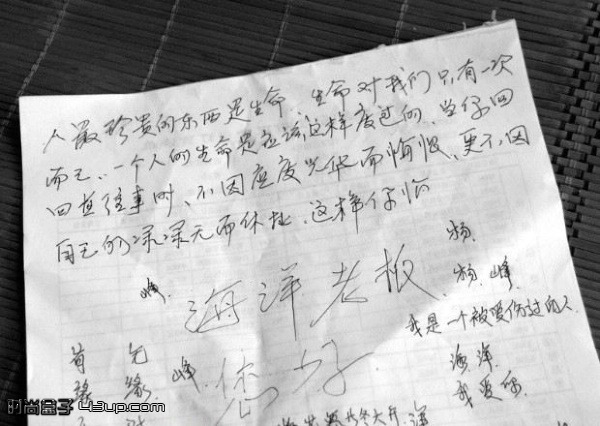 人最珍贵的东西是生命，生命对我们只有一次
而已、一个人的生命是应该这样度过的、当仔回
回首往事时、不因应度光化而悔恨、更不因
自己的碌碌无而休扯、这样仔临
杨
峰
海洋老板
杨 峰
我是一个被爱伤过的人
首 先
缘
峰
您好
海洋
我爱你
时尚盒子 43up.com